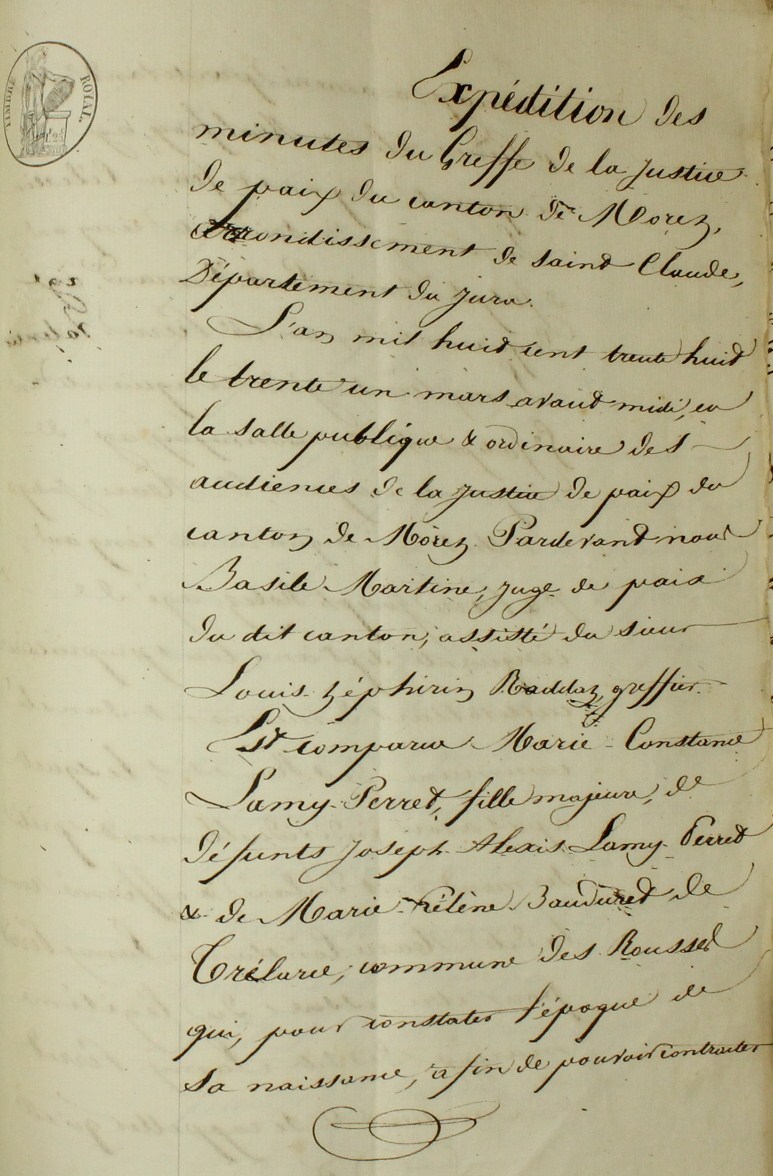 TIMBRE ROYAL
Expédition des
minutes du Greffe de la Justice
de paix du canton de Morez,
arrondissement de saint Claude,
Département du Jura.
L'an mil huit cent trente huit
le trente un mars avant midi, en
la salle publique & ordinaire des
audiences de la justice de paix du
canton de Morez Pardevant nous
Basile Martine, juge de paix
du dit canton, assisté du sieur
Louis Zéphirin Raddaz greffier
Est comparue Marie Constance
Lamy-Perret, fille majeure, de
défunts Joseph Alexis Lamy-Perret
& de Marie Hélène Bauduret de
Trélarce, commune des Rousses
qui, pour constater l'époque de
sa naissance, afin de pouvoir contracter